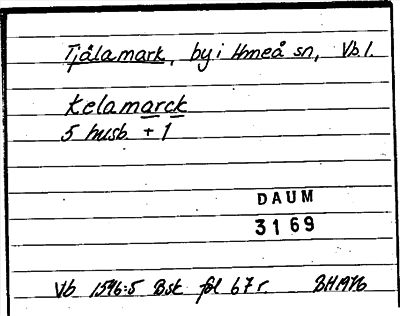 Tjälamark, by i Umeå sn, Vb l.
Kelamarck
5 husb. + 1
DAUM
3169
Vb 1546:5 Bsk fol 67 r. BH 1976